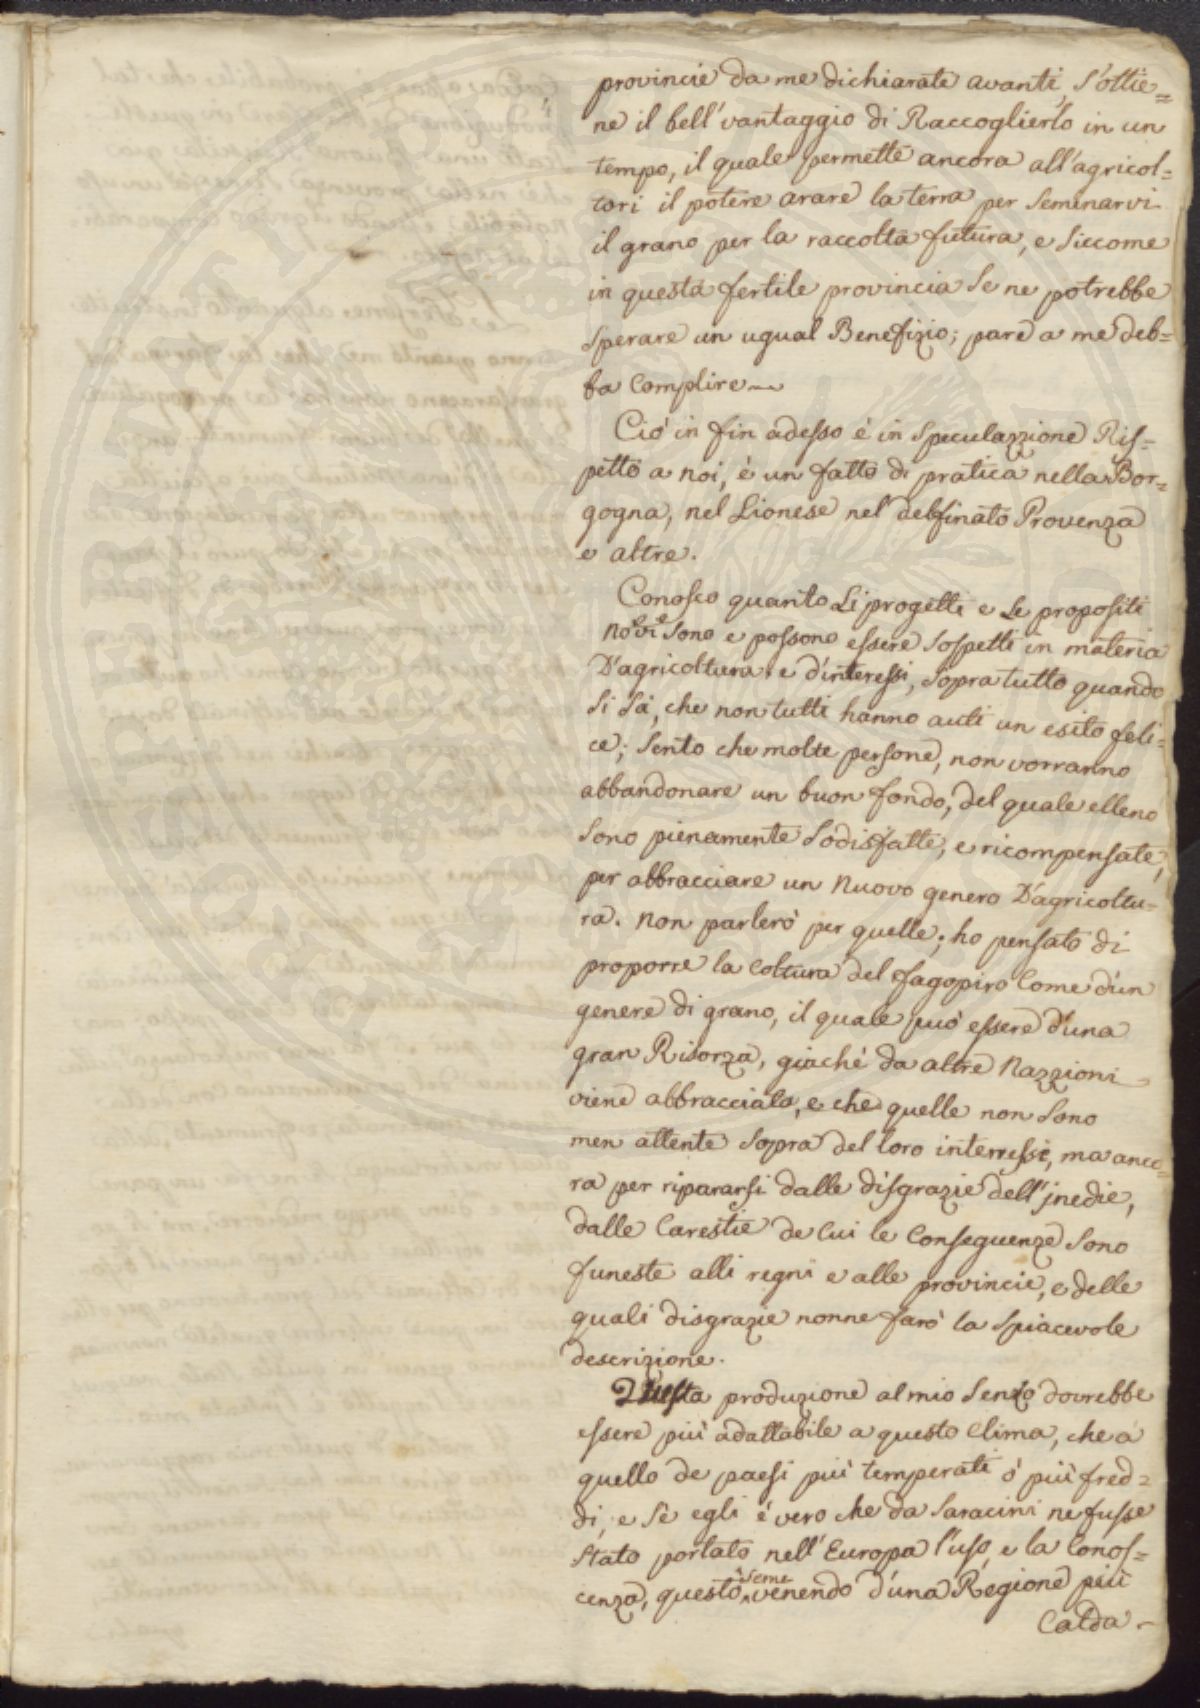 provincie da me dichiarate avanti, s'ottie=
ne il bell'vantaggio di Raccoglierlo in un
tempo, il quale permette ancora all'agricol=
tori il potere arare la terra per seminarvi
il grano per la raccolta futura, e siccome
in questa fertile provincia se ne potrebbe
sperare un ugual Benefizio; pare a me deb=
ba Complire
Ciò in fin adesso è in speculazzione Ris=
petto a noi, è un fatto di pratica nella Bor=
gogna, nel Lionese nel delfinato Provenza
e altre.
Conosco quanto Li progetti e Le propositi
novi sono e possono essere sospetti in materia
D'agricoltura e d'interessi, sopra tutto quando
si sà, che non tutti hanno auti un esito feli=
ce; sento che molte persone, non vorranno
abbandonare un buon fondo, del quale elleno
sono pienamente sodisfatte, e ricompensate,
per abbracciare un nuovo genero D'agricoltu=
ra. non parlerò per quelle; ho pensato di
proporre la Coltura del fagopiro Come d'un
genere di grano, il quale può essere d'una
gran Risorza, giaché da altre nazzioni
viene abbracciato, e che quelle non sono
men attente sopra del loro interressi, ma anco=
ra per ripararsi dalle disgrazie dell'jnedie,
dalle Carestie de Cui le Conseguenze sono
funeste alli regni e alle provincie, e delle
quali disgrazie nonne farò la spiacevole
descrizione.
Questa produzione al mio senzo dovrebbe
essere più adattabile a questo Clima, che a
quello de paesi più temperati ò più fred=
di, e se egli è vero che da Saracini ne fusse
stato portato nell'Europa l'uso, e la Conos=
cenza, questo seme venendo d'una Regione più
Calda